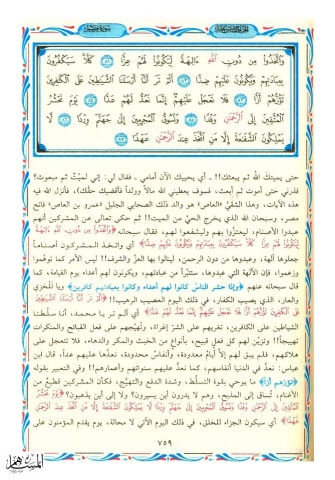 وَاتَّخَذُوا مِن دُونِ اللَّهِ ءَالِهَةً لِّيَكُونُوا لَهُمْ عِزًّا كَلَّا سَيَكْفُرُونَ
بِعِبَادَتِهِمْ وَيَكُونُونَ عَلَيْهِمْ ضِدًّا أَلَمْ تَرَ أَنَّا أَرْسَلْنَا الشَّيَاطِينَ عَلَى الْكَافِرِينَ
تَؤُزُّهُمْ أَزًّا فَلَا تَعْجَلْ عَلَيْهِمْ إِنَّمَا نَعُدُّ لَهُمْ عَدًّا يَوْمَ نَحْشُرُ
الْمُتَّقِينَ إِلَى الرَّحْمَٰنِ وَفْدًا وَنَسُوقُ الْمُجْرِمِينَ إِلَىٰ جَهَنَّمَ وِرْدًا لَّا
يَمْلِكُونَ الشَّفَاعَةَ إِلَّا مَنِ اتَّخَذَ عِندَ الرَّحْمَٰنِ عَهْدًا
حتى يميتك الله ثم يبعثك!! ـ أي يحييك الآن أمامي ـ فقال لي: إني لميِّت ثم مبعوث؟
فذرني حتى أموت ثم أبعث، فسوف يعطيني الله مالاً وولداً فأقضيك حقَّك)، فأنزل الله فيه
هذه الآيات، وهذا الشقيُّ «العاص» هو والد ذلك الصحابي الجليل (عمرو بن العاص) فاتح
مصر، وسبحان الله الذي يخرج الحيَّ من الميت!! ثم حكى تعالى عن المشركين أنهم
عبدوا الأصنام، ليتعزَّزوا بهم وليشفعوا لهم، فقال سبحانه ﴿وَاتَّخَذُوا مِن دُونِ اللَّهِ ءَالِهَةً
لِّيَكُونُوا لَهُمْ عِزًّا كَلَّا سَيَكْفُرُونَ بِعِبَادَتِهِمْ وَيَكُونُونَ عَلَيْهِمْ ضِدًّا﴾ أي واتخذ المشركون أصناماً
جعلوها آلهة، وعبدوها من دون الرحمن، لينالوا بها العزَّ والشرف!! ليس الأمر كما توهَّموا
وزعموا، فإن الآلهة التي عبدوها، ستتبرَّأ من عبادتهم، ويكونون لهم أعداء يوم القيامة، كما
قال سبحانه عنهم ﴿وإذا حشر الناس كانوا لهم أعداء وكانوا بعبادتهم كافرين﴾ ويا للخزي
والعار، الذي يصيب الكفار، في ذلك اليوم العصيب الرهيب!! ﴿أَلَمْ تَرَ أَنَّا أَرْسَلْنَا الشَّيَاطِينَ
عَلَى الْكَافِرِينَ تَؤُزُّهُمْ أَزًّا فَلَا تَعْجَلْ عَلَيْهِمْ إِنَّمَا نَعُدُّ لَهُمْ عَدًّا﴾ أي ألم تر يا محمد، أنا سلَّطنا
الشياطين على الكافرين، تغريهم على الشرِّ إغراءً، وتُهيِّجهم على فعل القبائح والمنكرات
تهييجاً!! وتزيِّن لهم كل فعلٍ قبيح، بأنواعٍ من الخبث والمكر والدهاء، فلا تتعجل على
هلاكهم، فلم يبق لهم إلَّا أيام معدودة، وأنفاسٌ محدودة، نعدُّها عليهم عداً، قال ابن
عباس: نعدُّ أنفاسهم في الدنيا كما نعدُّ عليهم سنواتهم وأعمارهم!! وفي التعبير بقوله
﴿تؤزهم أزًّا﴾ ما يوحي بقوة التسلُّط، وشدة الدفع والتهيُّج، فكأن المشركين قطيعٌ من
الأغنام، تُساق إلى المذبح، وهم لا يدرون أين يسيرون؟ ولا إلى أين يذهبون؟ ﴿يَوْمَ نَحْشُرُ
الْمُتَّقِينَ إِلَى الرَّحْمَٰنِ وَفْدًا وَنَسُوقُ الْمُجْرِمِينَ إِلَىٰ جَهَنَّمَ وِرْدًا لَّا يَمْلِكُونَ الشَّفَاعَةَ إِلَّا مَنِ اتَّخَذَ عِندَ الرَّحْمَٰنِ
عَهْدًا﴾ أي سيكون الجزاء للخلق، في ذلك اليوم الآتي لا محالة، يوم يقدم المؤمنون على
٧٥٩